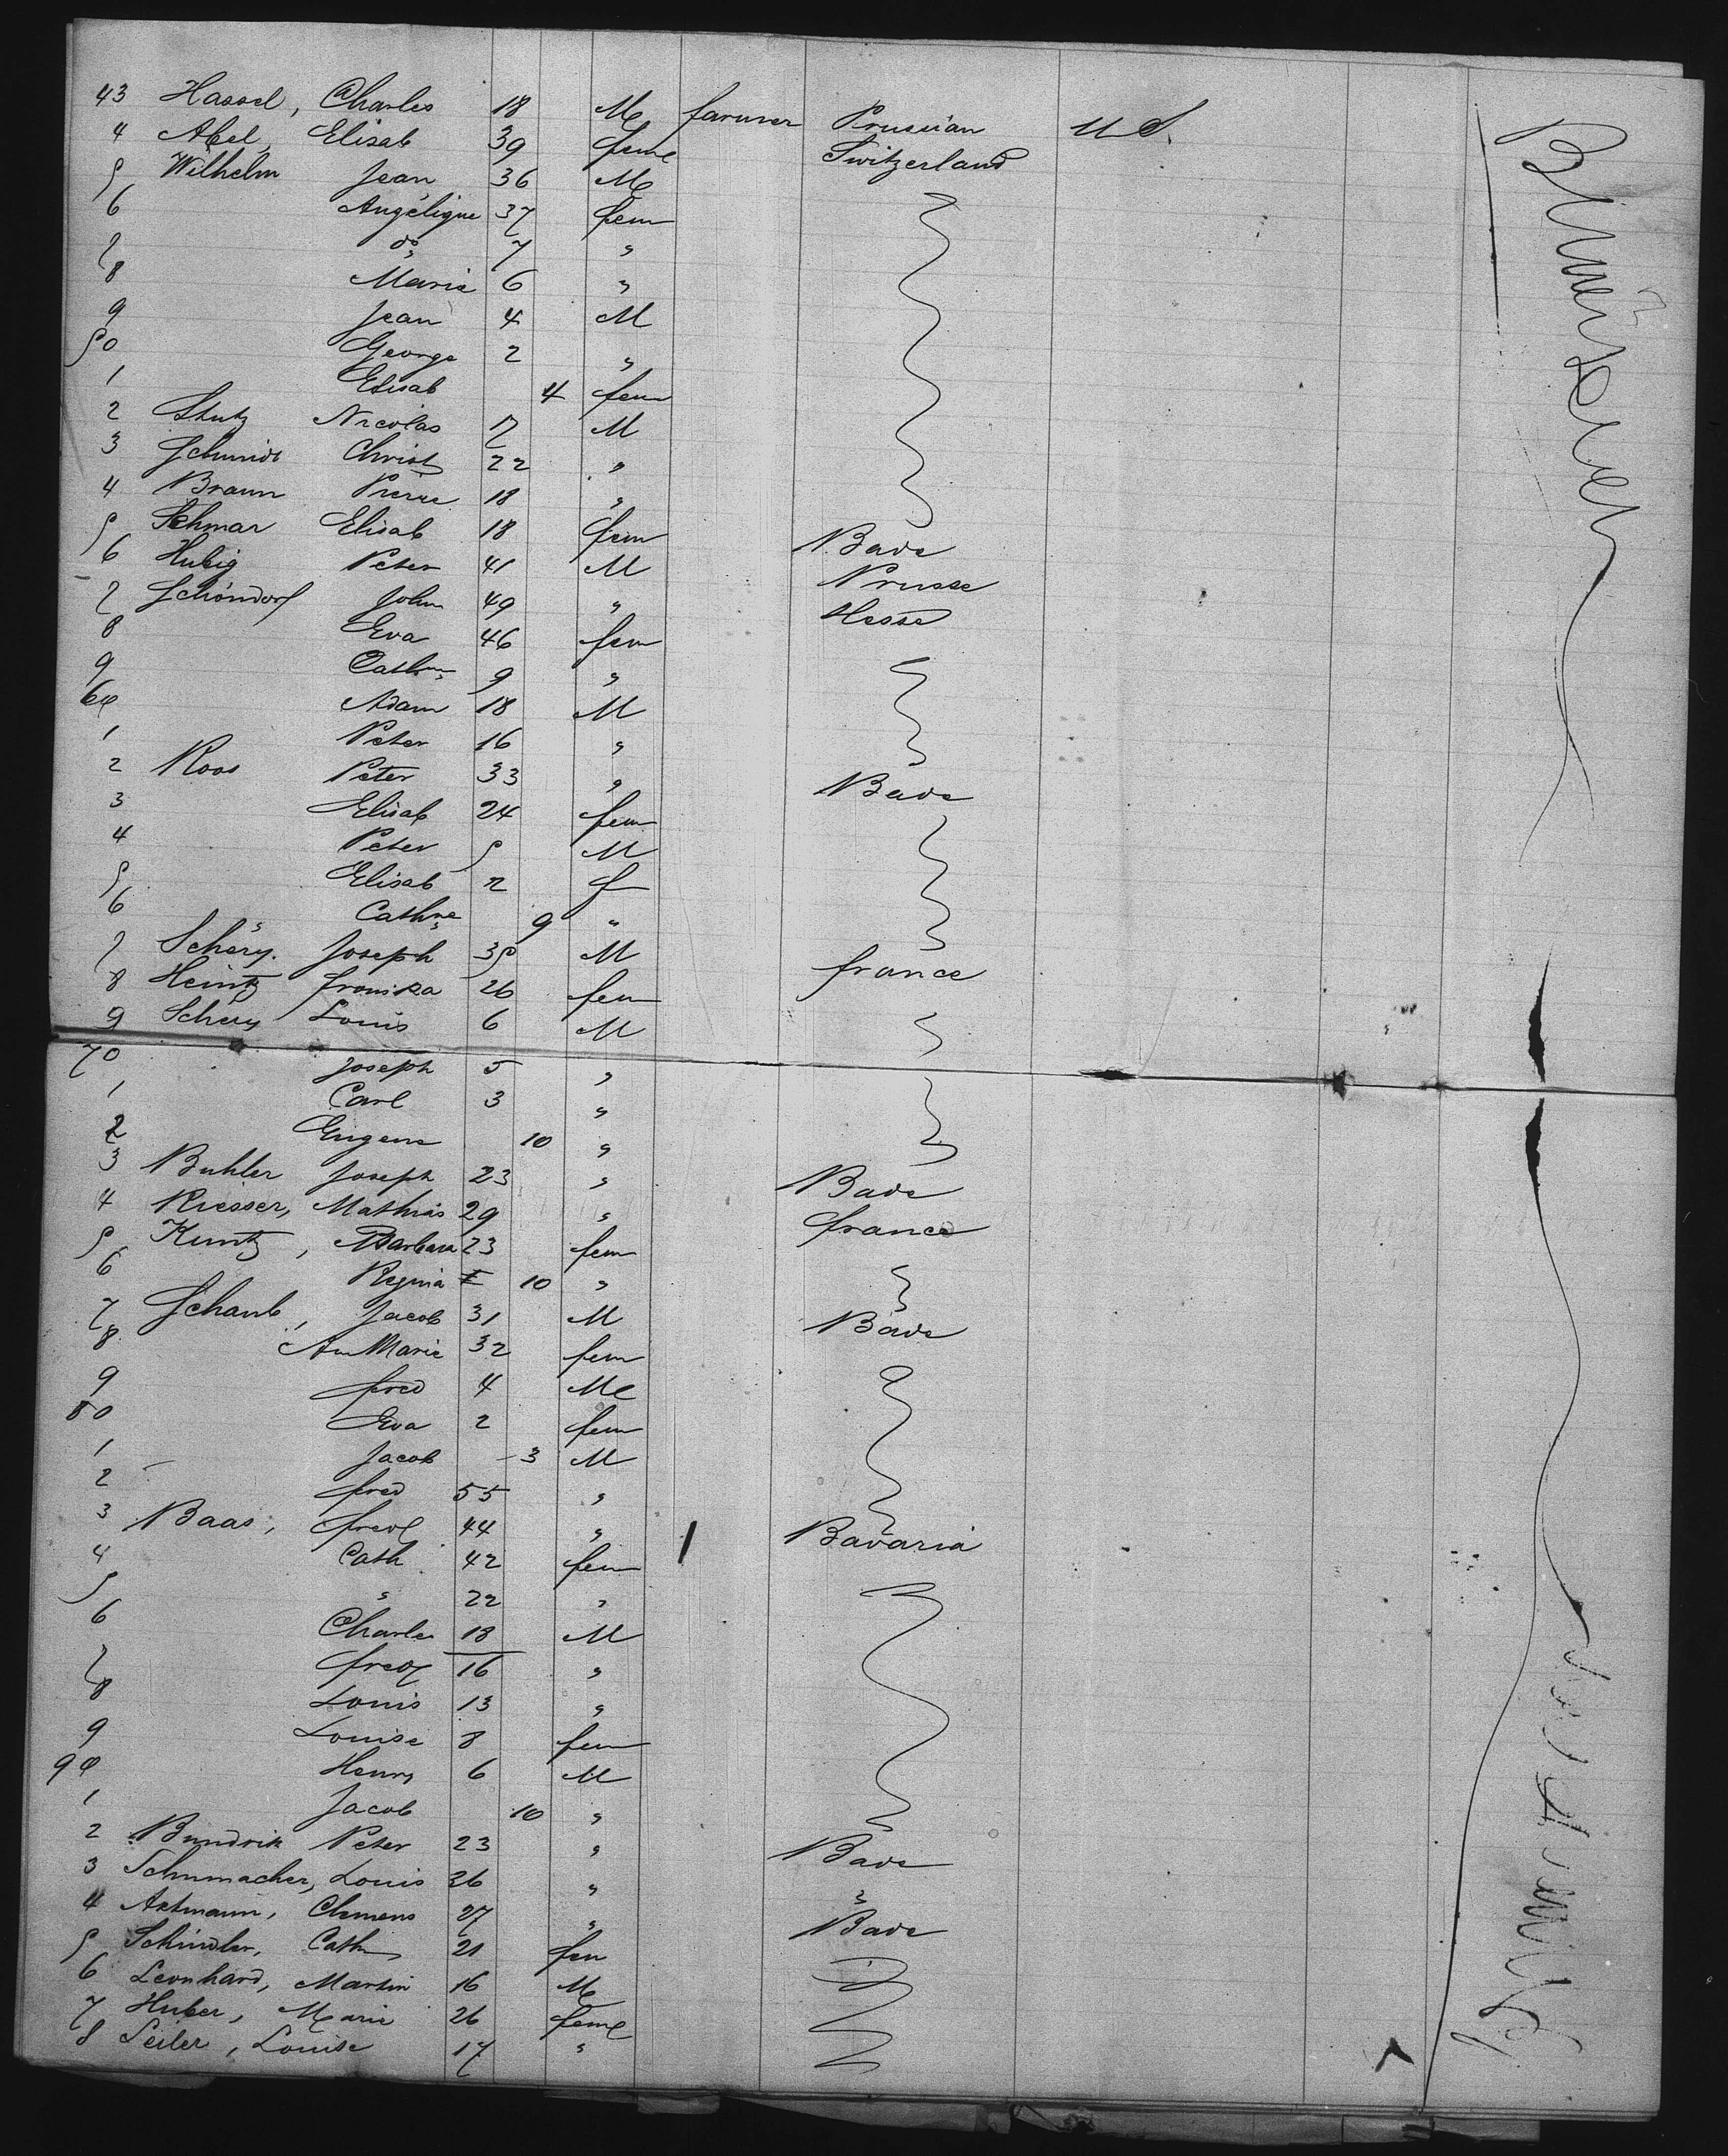 43 Hassel, Charles 18 M farmer Prussian U S.
4 Abel, Elisab 39 feml Switzerland
5 Wilhelm Jean 36 M
6 Angélique 37 fem
7 do 7 "
8 Marie 6 "
9 Jean 4 M
50 George 2 "
1 Elisab 4 fem
2 Stutz Nicolas 17 M
3 Schmidt Christ 22 "
4 Braun Pierre 18 "
5 Schmar Elisab 18 fem Bade
6 Hubig Peter 41 M Prusse
7 Schöndorf John 49 " Hesse
8 Eva 46 fem
9 Cath 9 "
60 Adam 18 M
1 Peter 16 "
2 Roos Peter 33 " Bade
3 Elisab 24 fem
4 Peter 5 M
5 Elisab 2 f
6 Cathne 9 "
7 Schery Joseph 35 M france
8 Heintz 26 fem
9 Schery Louis 6 M
70 Joseph 5 "
1 Carl 3 "
2 Eugene 10 "
3 Buhler Joseph 23 " Bade
4 Riesser, Mathias 29 " france
5 Kuntz, Barbara 23 fem
6 Regina 10 "
7 Schaub, Jacob 31 M Bade
8 An Marie 32 fem
9 fred 4 M
80 Eva 2 fem
1 Jacob 3 M
2 fred 55 "
3 Baas, fred 44 " Bavaria
4 Cath 42 fem
5 " 22 "
6 Charles 18 M
7 fred 16 "
8 Louis 13 "
9 Louise 8 fem
90 Henry 6 M
1 Jacob 10 "
2 Bundrik Peter 23 " Bade
3 Schumacher, Louis 26 " "
4 Axtmann, Clemens 27 " Bade
5 Schindler, Cath 21 fem
6 Leonhard, Martin 16 M
7 Huber, Marie 26 feml
8 Seiler, Louise 17 "